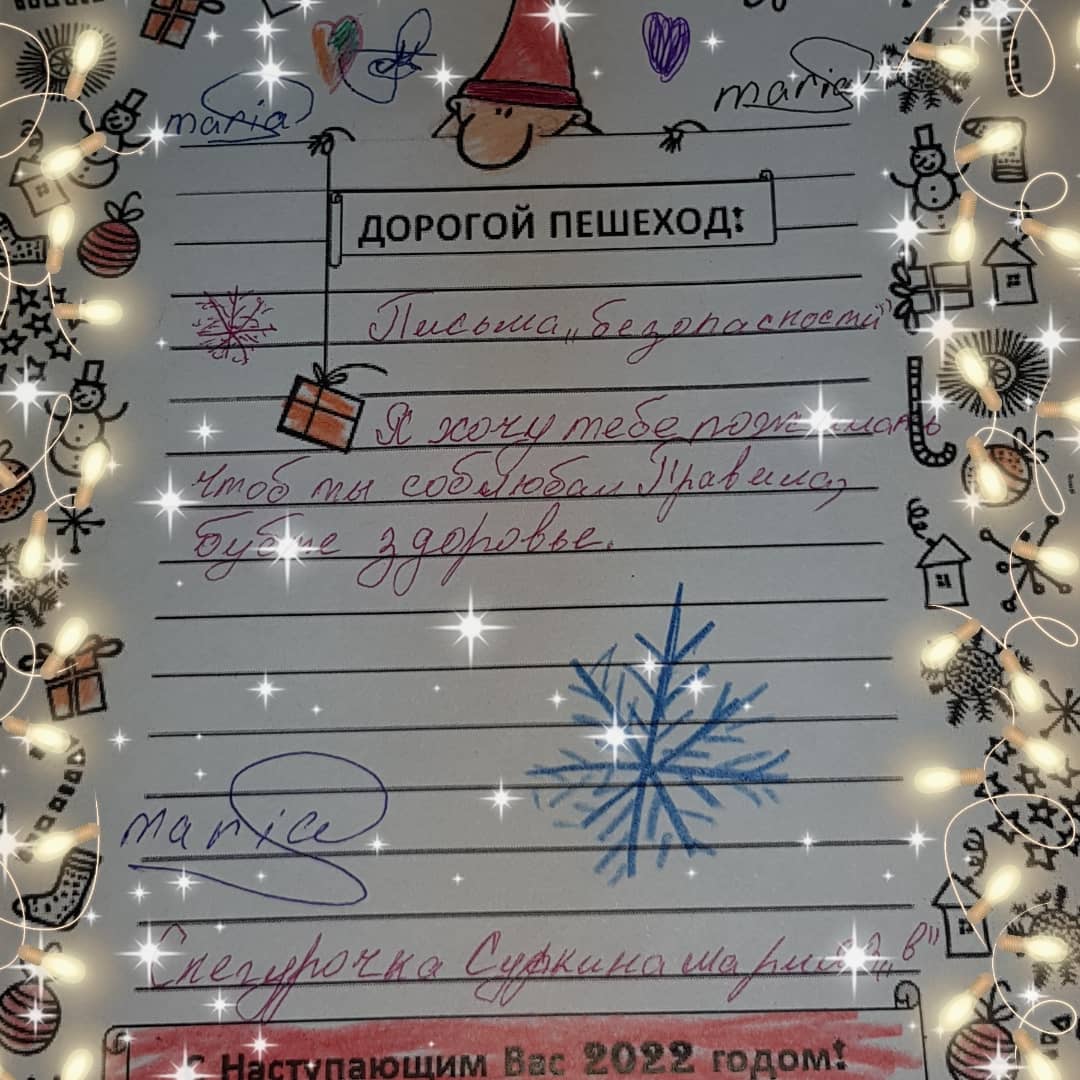 maria maria
ДОРОГОЙ ПЕШЕХОД!
Письма „безопасности"
Я хочу тебе
чтоб ты соблюбал Правила,
будте здоровье.
maria
Снегурочка мария „в"
С Наступающим Вас 2022 годом!